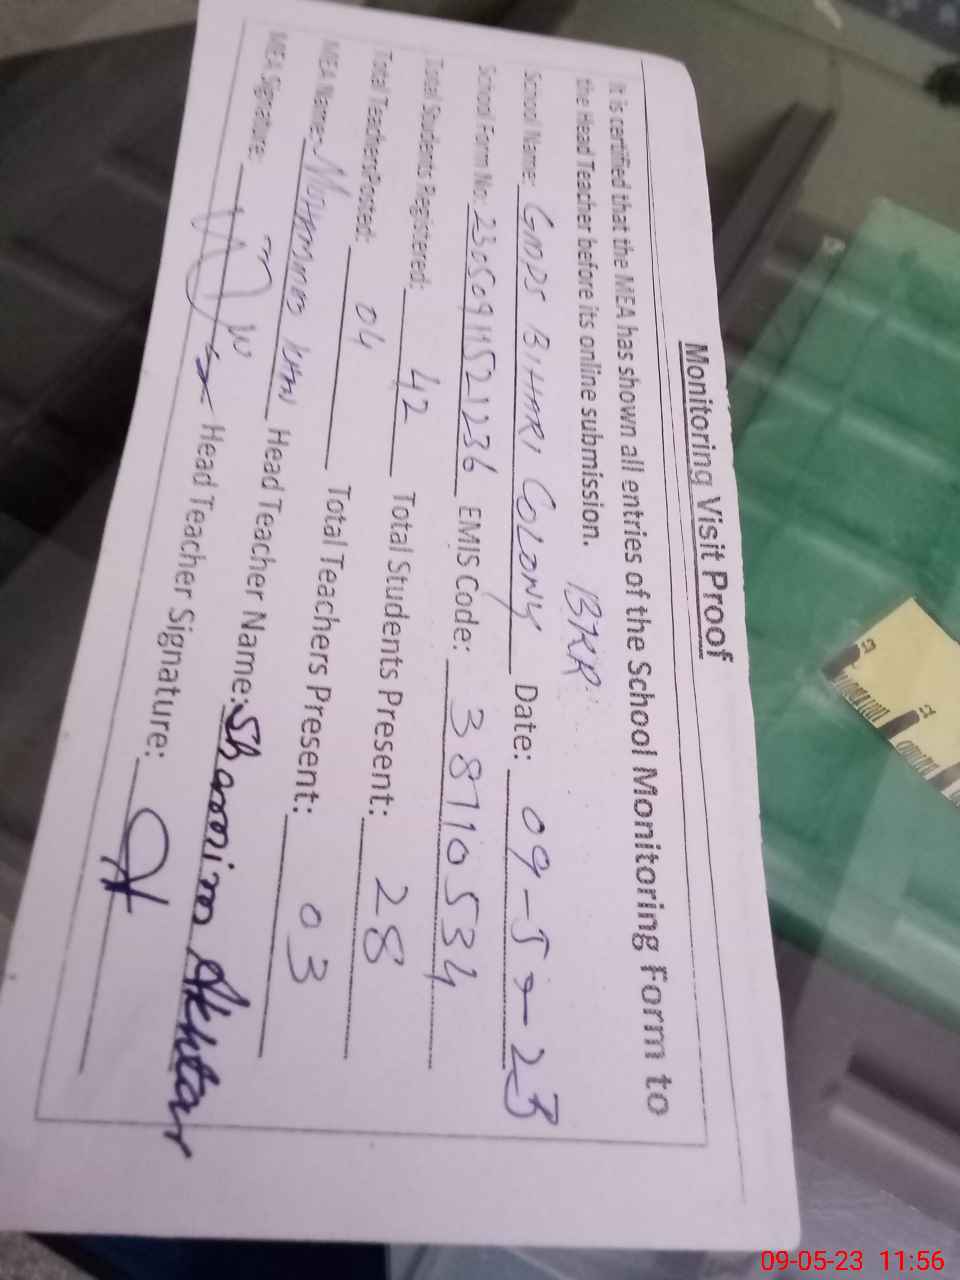 Monitoring Visit Proof
It is certified that the MEA has shown all entries of the School Monitoring Form to
the Head Teacher before its online submission. BKR
School Name: GMPS BIHARI COLONY Date: 09-5-23
School Form No: 23050911521236 EMIS Code: 38710534
Total Students Registered: 42 Total Students Present: 28
Total TeachersPosted: 04 Total Teachers Present: 03
MEA Name- MOHAMMAD KHAN Head Teacher Name: Shamim Akhtar
MEA Signature: Head Teacher Signature:
09-05-23 11:56